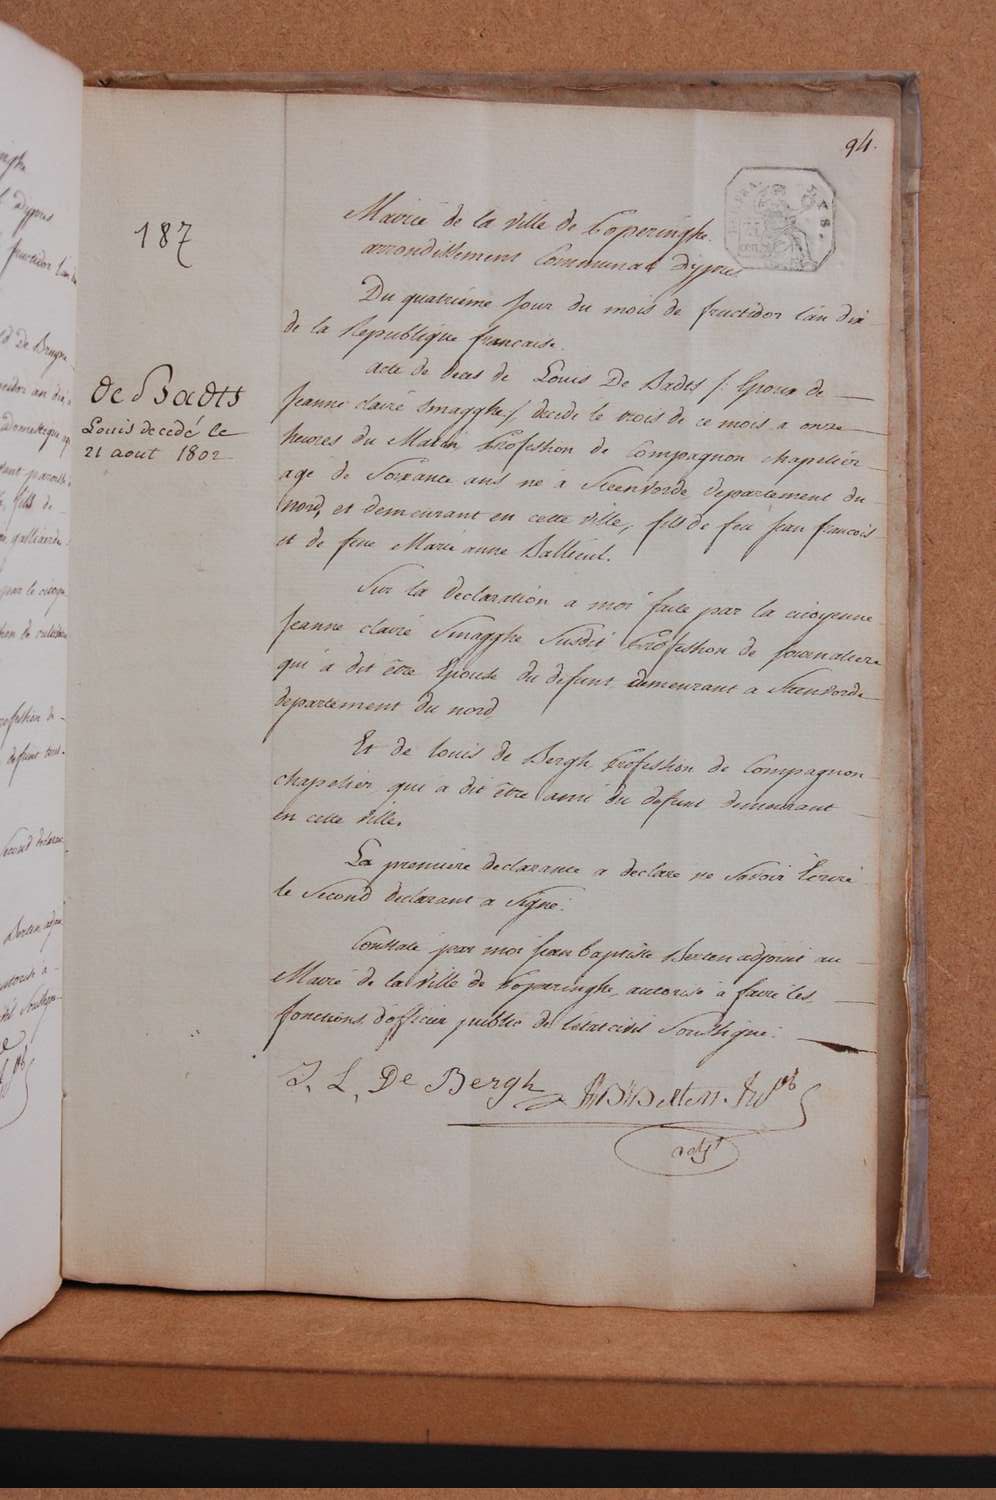 94.
187
Mairié de la ville de Poperinghe.
arrondissement Communal dypres
Du quatrième jour du mois de fructidor l'an dix
de la République française.
acte de deces de Louis De Badts / Epoux de
Jeanne claire Smagghe / decedé le trois de ce mois a onze
heures du Matin Profession de Compagnon chapelier
agé de Soixante ans né à Steenvorde departement du
nord, et demeurant en cette ville, fils de feu Jean francois
et de feue Marie anne Bailleul.
de Badts
Louis decedé le
21 aout 1802
Sur la declaration a moi faite par la citoyenne
Jeanne claire Smagghe Susdit Profession de Journaliere
qui a dit être Epouse du defunt demeurant a Steenvorde
departement du nord
Et de louis de Bergh Profession de Compagnon
chapelier qui a dit être ami du defunt demeurant
en cette ville.
La premiere declarante a declaré ne Savoir Ecrire
le Second declarant a Signé.
Constaté par moi Jean baptiste Berten adjoint au
Maire de la Ville de Poperinghe, autorisé à faire les
fonctions d'officier public de l'état civil Soussigné.
J. L. De Bergh